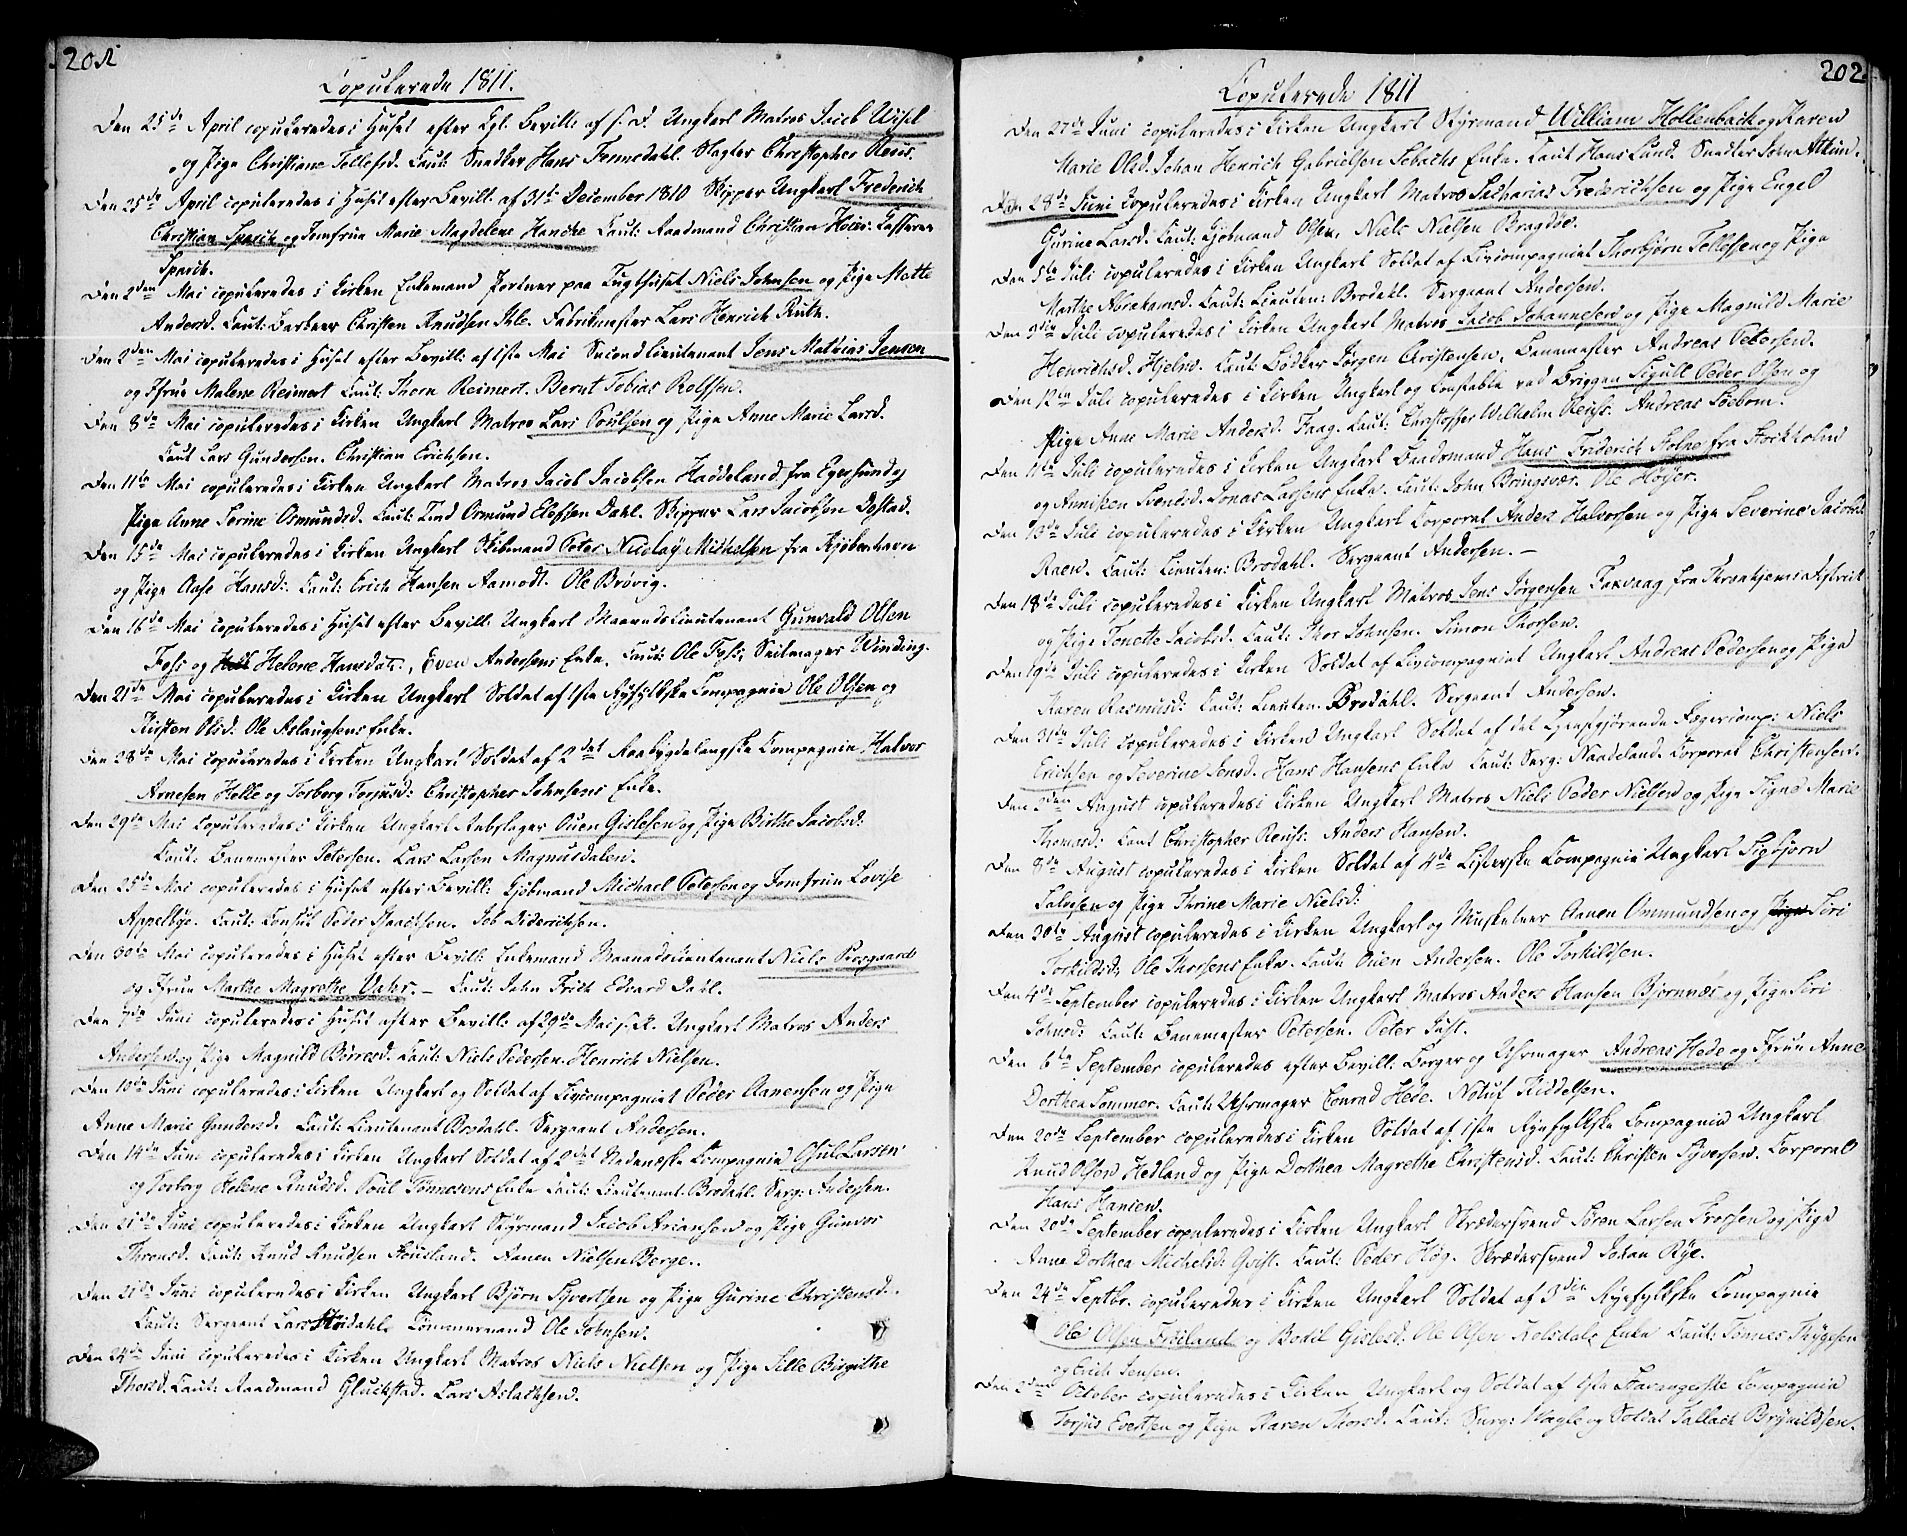 201
Copulerede 1811.
Den 25de April copuleredes i Huset efter Kgl. Bevill: af s. D. Ungkarl Matros Jacob Wisel
og Pige Christiane Tellefsd. Caut: Snedker Hans Tennedahl. Slagter Christopher Reuss.
Den 25de April copuleredes i Huset efter Bevill: af 31te December 1810 Skipper Ungkarl Frederich
Christian Sparck og Jomfrue Marie Magdelene Hancke Caut: Raadmand Christian Kasserer
Sparck.
Den 2den Mai copuleredes i Kirken Enkemand Portner paa Tugthuset Niels Johnsen og Pige Mette
Andersd. Caut: Christen Knudsen Ihle. Fabrikmester Lars Henrich Ruth.
Den 2den Mai copuleredes i Huset efter Bevill: af 1ste Mai Second Lieutenant Jens Mathias Jensen
og Jfrue Malene Reimert Caut: Thorn Reimert. Bernt Tobias Rolfsen.
Den 8de Mai copuleredes i Kirken Ungkarl Matros Lars Poulsen og Pige Anne Marie Larsd.
Caut Lars Gundersen. Christian Erichsen.
Den 11te Mai copuleredes i Kirken Ungkarl Matros Jacob Jacobsen Haddeland fra Egersund og
Pige Anne Serine Osmundsd. Caut: Osmund Elefsen Dahl. Skipper Lars Jacobsen Dystad.
Den 15de Mai copuleredes i Kirken Ungkarl Skibmand Peter Nicolay Michelsen fra Kjøbenhavn
og Pige Aase Hansd: Caut: Erich Hansen Aamodt. Ole Brøvig.
Den 16de Mai copuleredes i Huset efter Bevill: Ungkarl Maanedslieutenant Gunvald Olsen
Fosi og Helene Hansdat:, Even Andersens Enke. Caut: Ole Fosi, Seilmager Winding.
Den 21de Mai copuleredes i Kirken Ungkarl Soldat af 1ste Ryfylkske Compagnie Ole Olsen og
Kirsten Olsd: Ole Aslaugsens Enke.
Den 28de Mai copuleredes i Kirken Ungkarl Soldat af 2det Raabygdelaugske Compagnie Halvor
Arnesen Helle og Torborg Torjusd: Christopher Johnsens Enke.
Den 29de Mai copuleredes i Kirken Ungkarl Rebslager Ouen Gislesen og Pige Birthe Jacobsd:
Caut: Banemester Petersen. Lars Larsen Magnusdalen.
Den 25de Mai copuleredes i Huset efter Bevill: Kjøbmand Michael Petersen og Jomfrue Lovise
Appelbye. Caut: Consul Peder Isaachsen. Job Diderichsen.
Den 30te Mai copuleredes i Huset efter Bevill: Enkemand Maanedslieutenant Niels
og Jfrue Marthe Magrethe Dahr. – Caut: John Frith Edvard Dahl.
Den 7de Juni copuleredes i Huset efter Bevill: af 29de Mai s. A. Ungkarl Matros Anders
Andersen og Pige Magnild Børresd. Caut: Niels Pedersen. Henrich Nielsen.
Den 13de Juni copuleredes i Kirken Ungkarl og Soldat af Livcompagniet Peder Aanensen og Pige
Anne Marie Gundersd. Caut: Lieutenant Brodahl. Sergeant Andersen.
Den 14de Juni copuleredes i Kirken Ungkarl Soldat af 2det Nedenæske Compagnie Gjul Larsen
og Torborg Helene Knudsd. Poul Tønnesens Enke Caut: Lieutenant Brodahl. Serg: Andersen.
Den 21de Juni copuleredes i Kirken Ungkarl Styrmand Jacob Ariansen og Pige Gunvor
Thronsd. Caut: Knud Knudsen Aanen Nielsen Berge.
Den 21de Juni copuleredes i Kirken Ungkarl Bjørn Syvertsen og Pige Gurine Christensd.
Caut: Sergeant Lars Tømmermand Ole Johnsen.
Den 24de Juni copuleredes i Kirken Ungkarl Matros Niels Nielsen og Pige Sille Birgithe
Thorsd. Caut: Raadmand Gluckstad. Lars Aslachsen.
202
Copulerede 1811
Den 27de Juni copuleredes i Kirken Ungkarl Styrmand William Hollenbach og Karen
Marie Olsd. Johan Henrich Gabrielsen Schachs Enke. Caut Hans Lund. Snedker John
Den 28de Juni copuleredes i Kirken Ungkarl Matros Sacharias Frederichsen og Pige Engel
Gurine Larsd. Caut: Kjøbmand Olsen. Niels Nielsen Bragdøe.
Den 5te Juli copuleredes i Kirken Ungkarl Soldat af Livcompagniet Thorbjørn Tellefsen og Pige
Marthe Abrahamsd. Caut: Lieuten: Brodahl. Sergeant Andersen.
Den 9de Juli copuleredes i Kirken Ungkarl Matros Jacob Johannesen og Pige Magnild Marie
Henrichsd. Hjelm. Caut: Bødker Jørgen Christensen, Banemester Andreas Petersen.
Den 12te Juli copuleredes i Kirken Ungkarl og Constable ved Briggen Sigull Peder Olsen og
Pige Anne Marie Andersd. Faag. Caut: Christoffer Wilhelm Reuss. Andreas Søeborn.
Den 11te Juli copuleredes i Kirken Ungkarl Baadsmand Hans Friderich Holne fra Stockholm
og Annichen Svendsd. Jonas Larsens Enke. Caut: John Bringsvær. Ole Høyer.
Den 13de Juli copuleredes i Kirken Ungkarl Corporal Anders Halvorsen og Pige Severine Jacobsd.
Raen. Caut: Lieuten: Brodahl. Sergeant Andersen. –
Den 18de Juli copuleredes i Kirken Ungkarl Matros Jens Jørgensen Foxvaag fra Thronhjems District
og Pige Tonette Jacobsd. Caut: Thor Johnsen. Simon Thorsen.
Den 19de Juli copuleredes i Kirken Soldat af Livcompagniet Ungkarl Andreas Pedersen og Pige
Karen Rasmusd: Caut: Lieuten. Brodahl. Sergeant Andersen.
Den 31te Juli copuleredes i Kirken Ungkarl Soldat af det Tjenstgjørende Jægercomp: Niels
Erichsen og Severine Jensd. Hans Hansens Enke Caut: Serg: Naadeland. Corporal Christensen.
Den 2den August copuleredes i Kirken Ungkarl Matros Niels Peder Nielsen og Pige Signe Marie
Thomasd: Caut Christopher Reuss: Anders Hansen.
Den 8de August copuleredes i Kirken Soldat af 4de Listerske Compagnie Ungkarl Sigbjørn
Salvesen og Pige Thrine Marie Nielsd:
Den 30te August copuleredes i Kirken Ungkarl og Musketeer Aanen Ommundsen og Siri
Torkildsd, Ole Thorsens Enke. Caut: Ouen Andersen. Ole Torkildsen.
Den 4de September copuleredes i Kirken Ungkarl Matros Anders Hansen Bjørnnæs og Pige Siri
Johnsd: Caut: Banemester Petersen. Peter Just.
Den 6te September copuleredes efter Bevill: Borger og Uhrmager Andreas Hede og Jfrue Anne
Dorthea Sommer. Caut: Uhrmager Conrad Hede. Noluf Kiddelsen.
Den 20de September copuleredes i Kirken Soldat af 1ste Ryefylkske Compagnie Ungkarl
Knud Olsen Hedland og Pige Dorthea Magrethe Christensd. Caut: Christen Syversen. Corporal
Hans Hansen.
Den 20de September copuleredes i Kirken Ungkarl Skrædersvend Søren Larsen Trorsen og Pige
Anne Dorthea Michelsd: Qvist. Caut: Peder Høg. Skrædersvend Johan Rye.
Den 24de Septbr. copuleredes i Kirken Ungkarl Soldat af 3die Ryefylkske Compagnie
Ole Olsen Frøiland og Bodil Gislesd: Ole Olsen Kolsdals Enke Caut: Tønnes Thygesen
og Erich Jensen.
Den 2den October copuleredes i Kirken Ungkarl og Soldat af 1ste Stavangerske Compagnie
Torjus Evertsen og Pige Karen Thorsd. Caut: Serg: Nagle og Soldat Tallach Brynildsen.